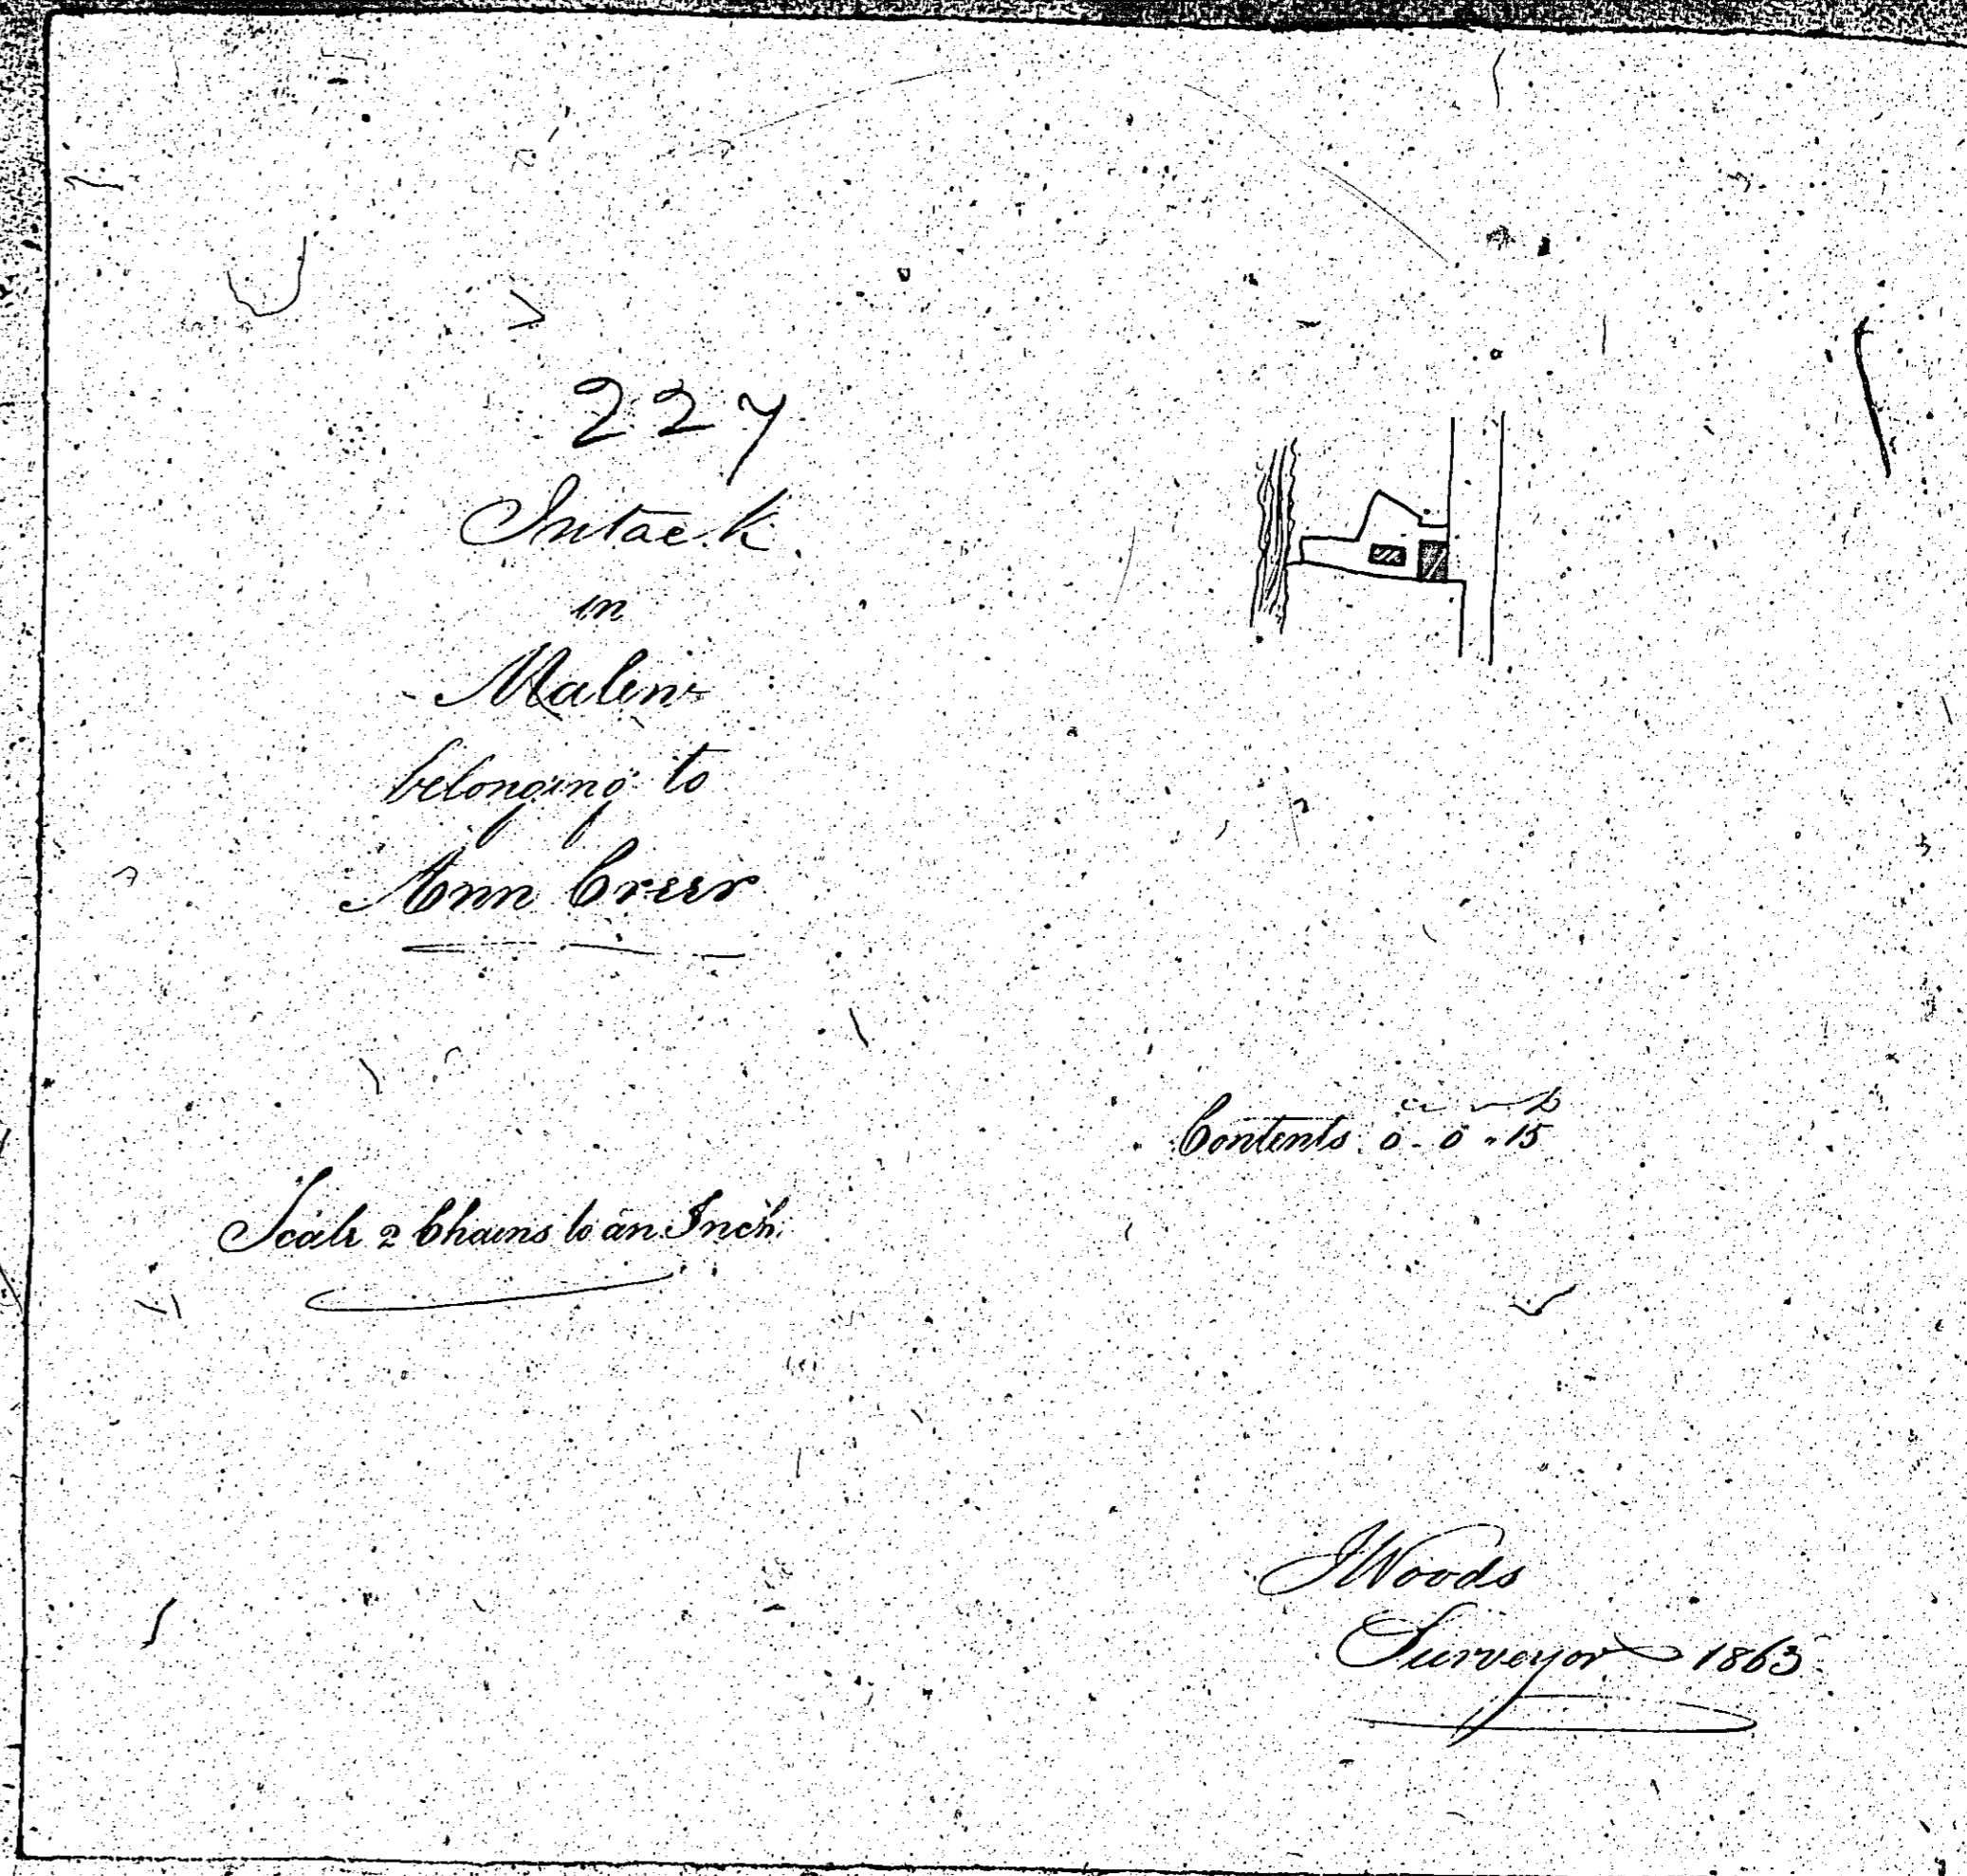 227
Intack
in
Malew
belonging to
Ann Creer
a r p
Contents 0-0-15
Scale 2 Chains to an Inch.
JWoods
Surveyor 1863